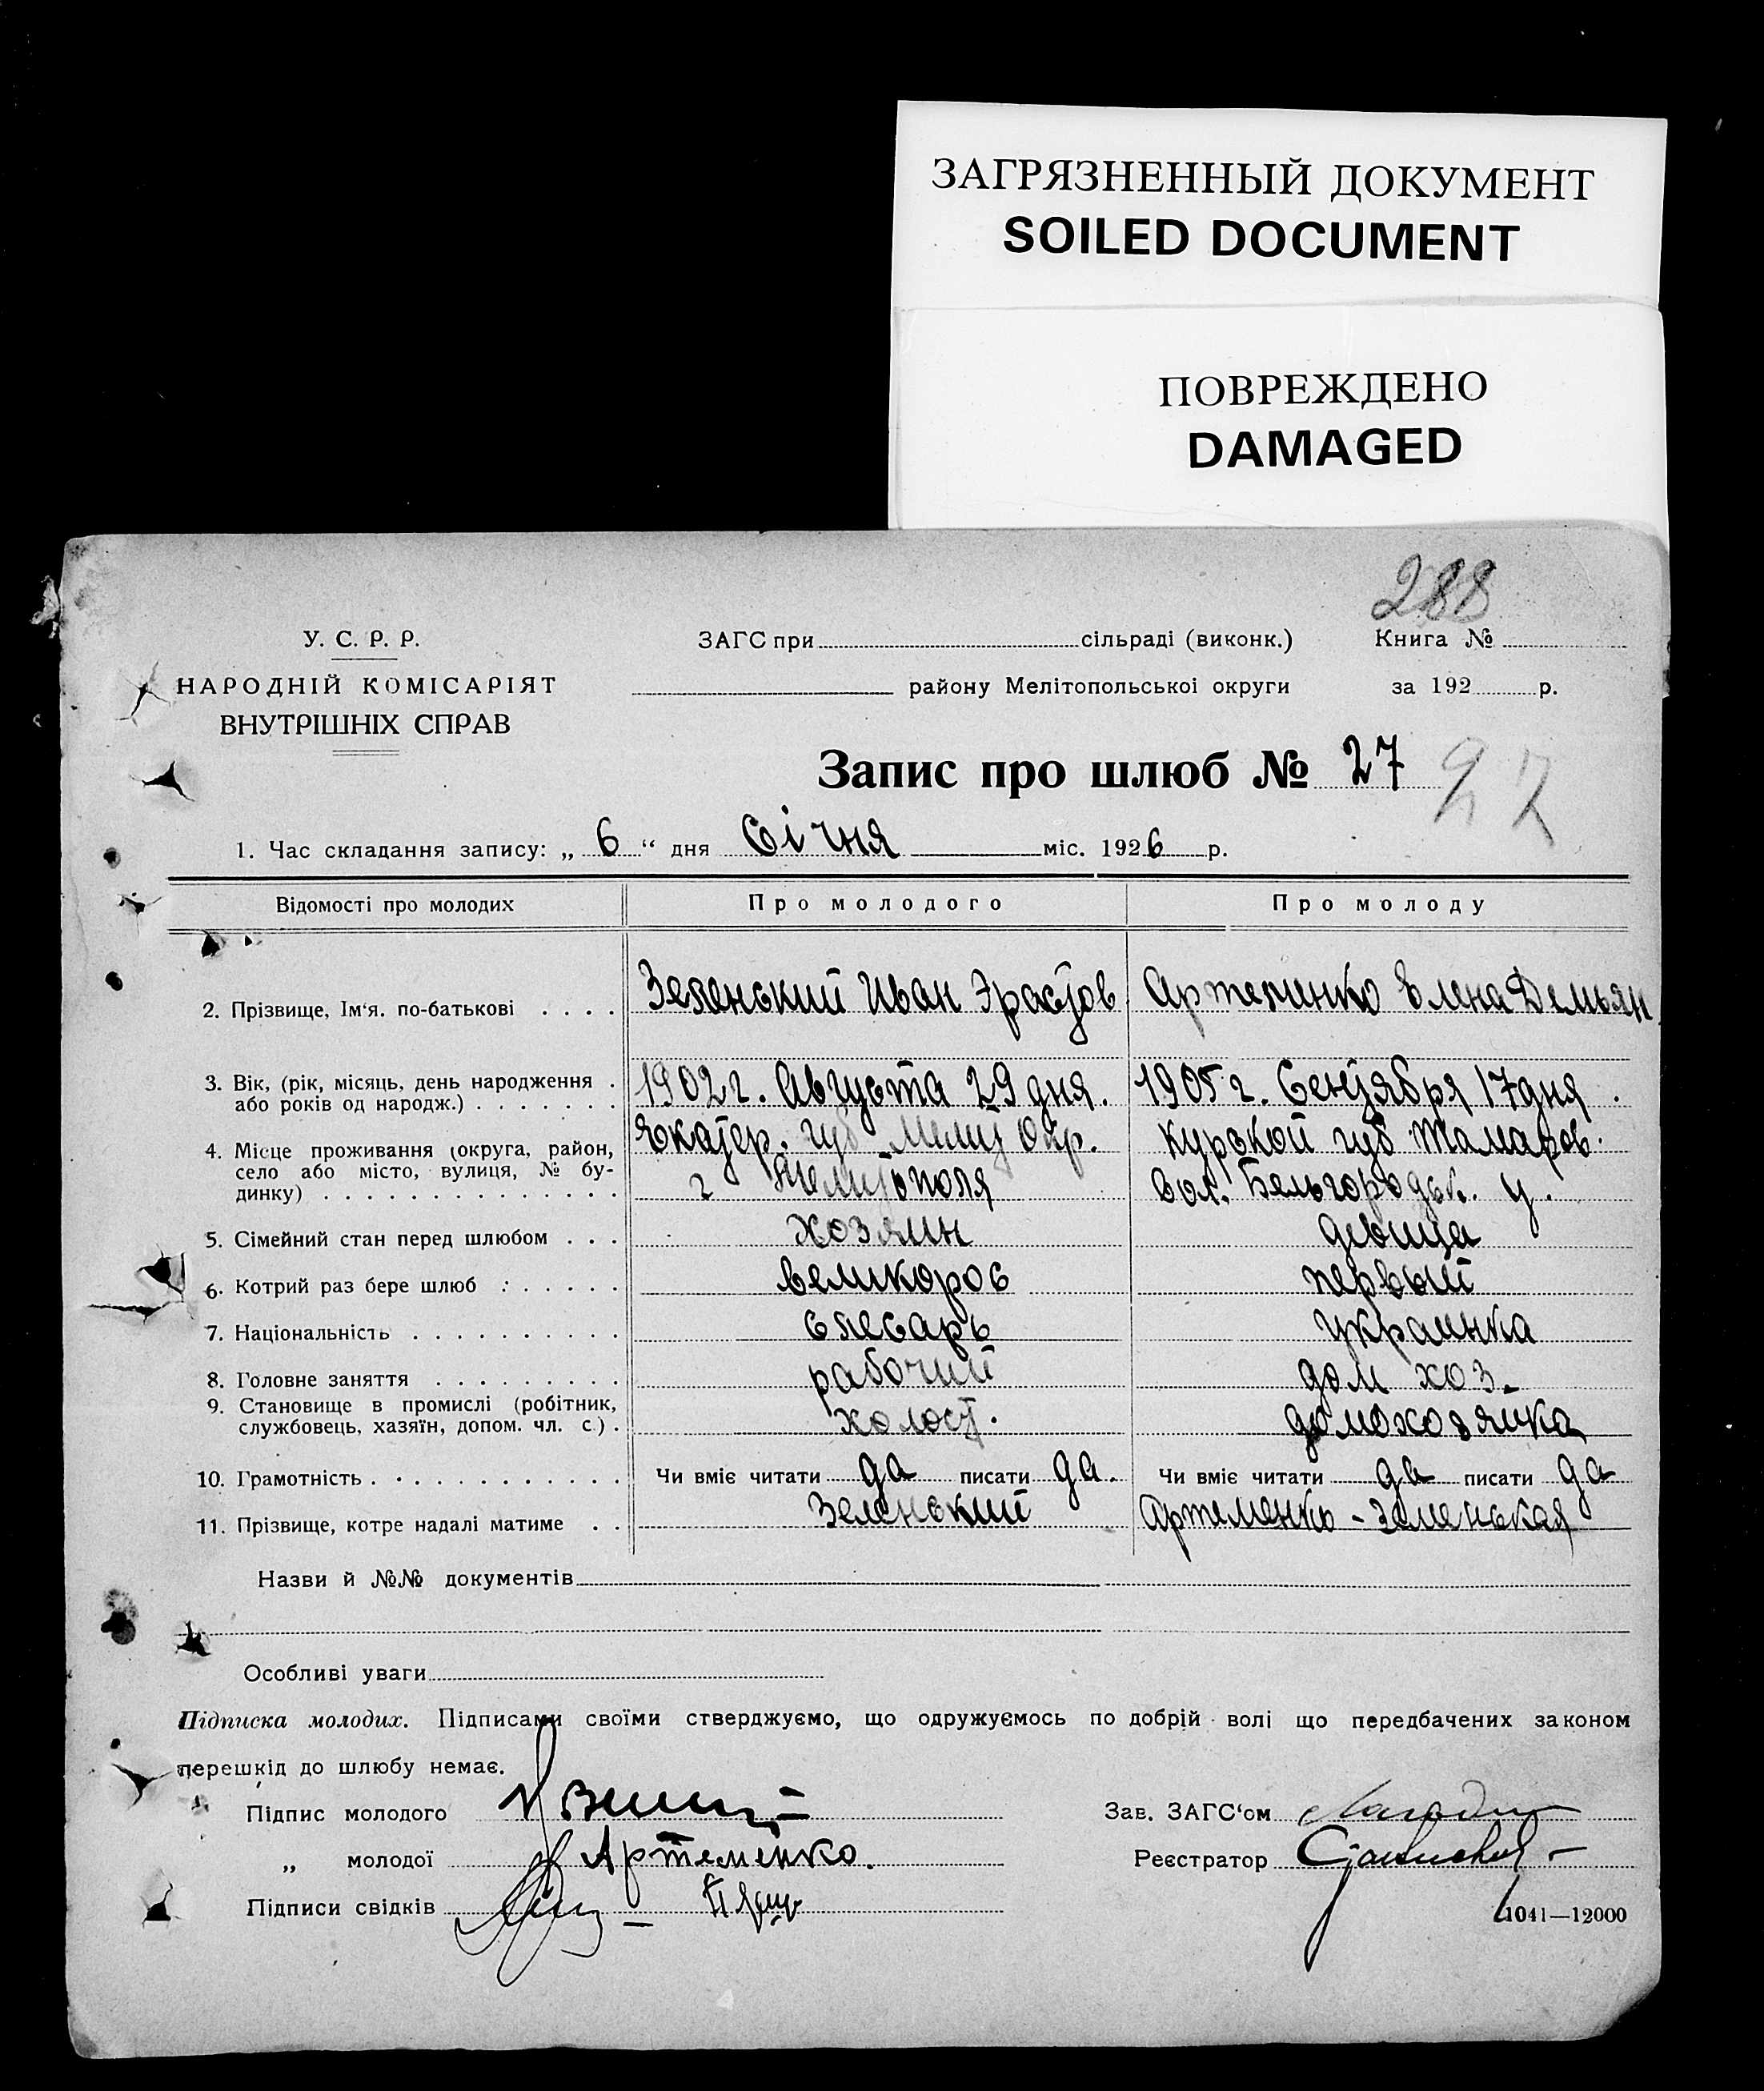 ЗАГРЯЗНЕННЫЙ ДОКУМЕНТ
SOILED DOCUMENT
ПОВРЕЖДЕНО
DAMAGED
288
У. С. Р. Р.
НАРОДНІЙ КОМІСАРІЯТ
ВНУТРІШНІХ СПРАВ
ЗАГС при сільраді (виконк.)
району Мелітопольської округи
Книга №
за 192 р.
Запис про шлюб № 27 27
1. Час складання запису: „ 6 “ дня Січня міс. 1926 р.
Відомості про молодих Про молодого Про молоду
2. Прізвище, Ім‘я. по-батькові . . . . Зеленский Иван Эрастов Артеменко Елена Демьян
3. Вік, (рік, місяць, день народження . 1902 г. Августа 29 дня. 1905 г. Сентября 17 дня.
або років од народж.) . . . . . . .
4. Місце проживання (округа, район, Екатер. губ Мелит Окр. Курской губ Тамаров.
село або місто, вулиця, № бу-
динку) . . . . . . . . . . . . . . г Мелитополя вол. Бельгородск. у.
5. Сімейний стан перед шлюбом . . . хозяин девица
6. Котрий раз бере шлюб : . . . . . великорос первый
7. Національність . . . . . . . . . . слесарь украинка
8. Головне заняття . . . . . . . . . рабочий дом хоз.
9. Становище в промислі (робітник,
службовець, хазяїн, допом. чл. с.) . холост. домохозяйка
10. Грамотність . . . . . . . . . . . Чи вміє читати да писати да. Чи вміє читати да писати да
11. Прізвище, котре надалі матиме . . Зеленский Артеменко - Зеленская
Назви й №№ документів
Особливі уваги
Підписка молодих. Підписами своїми стверджуємо, що одружуємось по добрій волі що передбачених законом
перешкід до шлюбу немає.
Підпис молодого
„ молодої Артеменко.
Підписи свідків
Зав. ЗАГС‘ом
Реєстратор
1041—12000